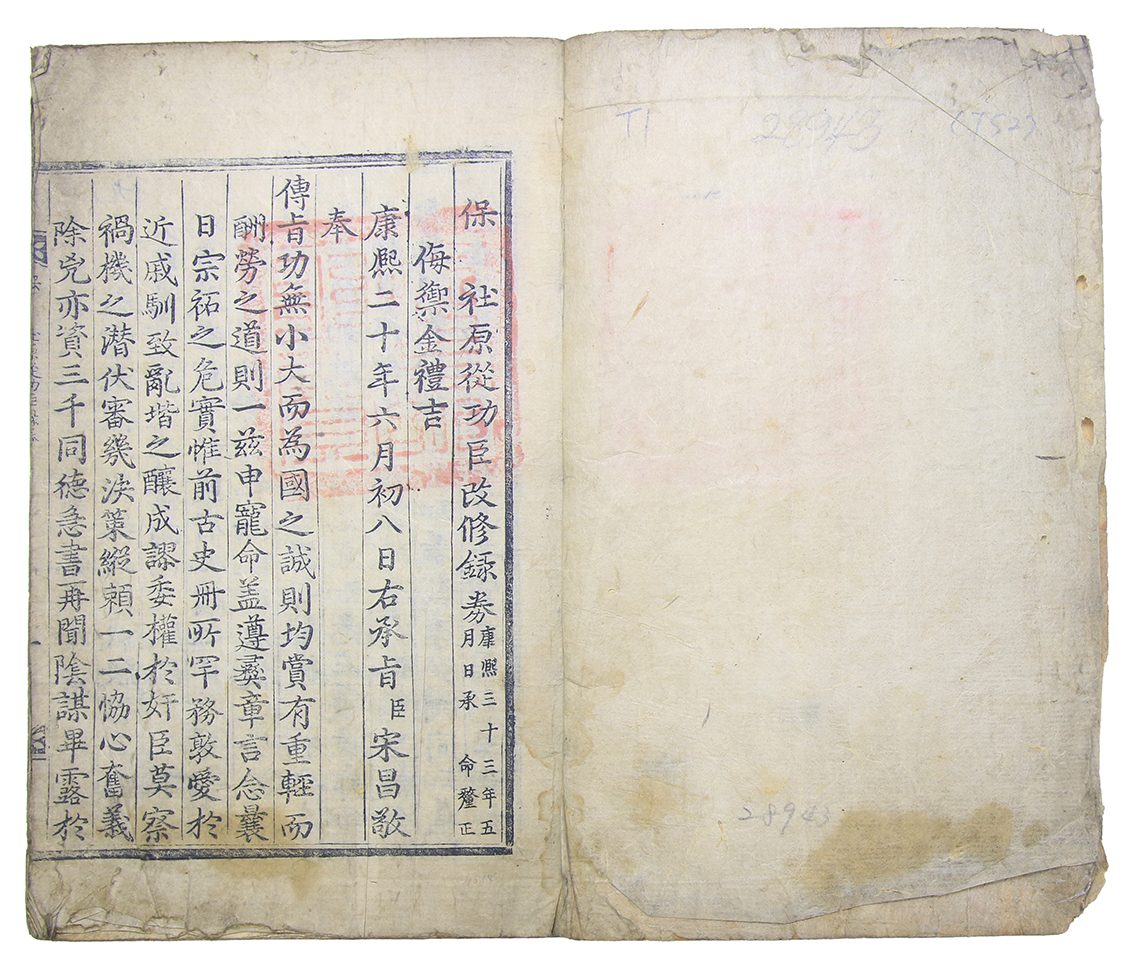 T1 28943
28943
保 社原從功臣改修錄券 康熙三十三年五月日承 命釐正
侮禦金禮吉
康熙二十年六月初八日右承旨臣宋昌敬
奉
傳旨功無小大而為國之誠則均賞有重輕而
酬勞之道則一兹申寵命盖遵彛章言念曩
日宗祏之危實惟前古史冊所罕務敦愛於
近戚馴致亂堦之釀成謬委權於奸臣莫察
禍機之潜伏審幾决策縱賴一二恊心奮義
除兇亦資三千同德急書再聞陰謀畢露於